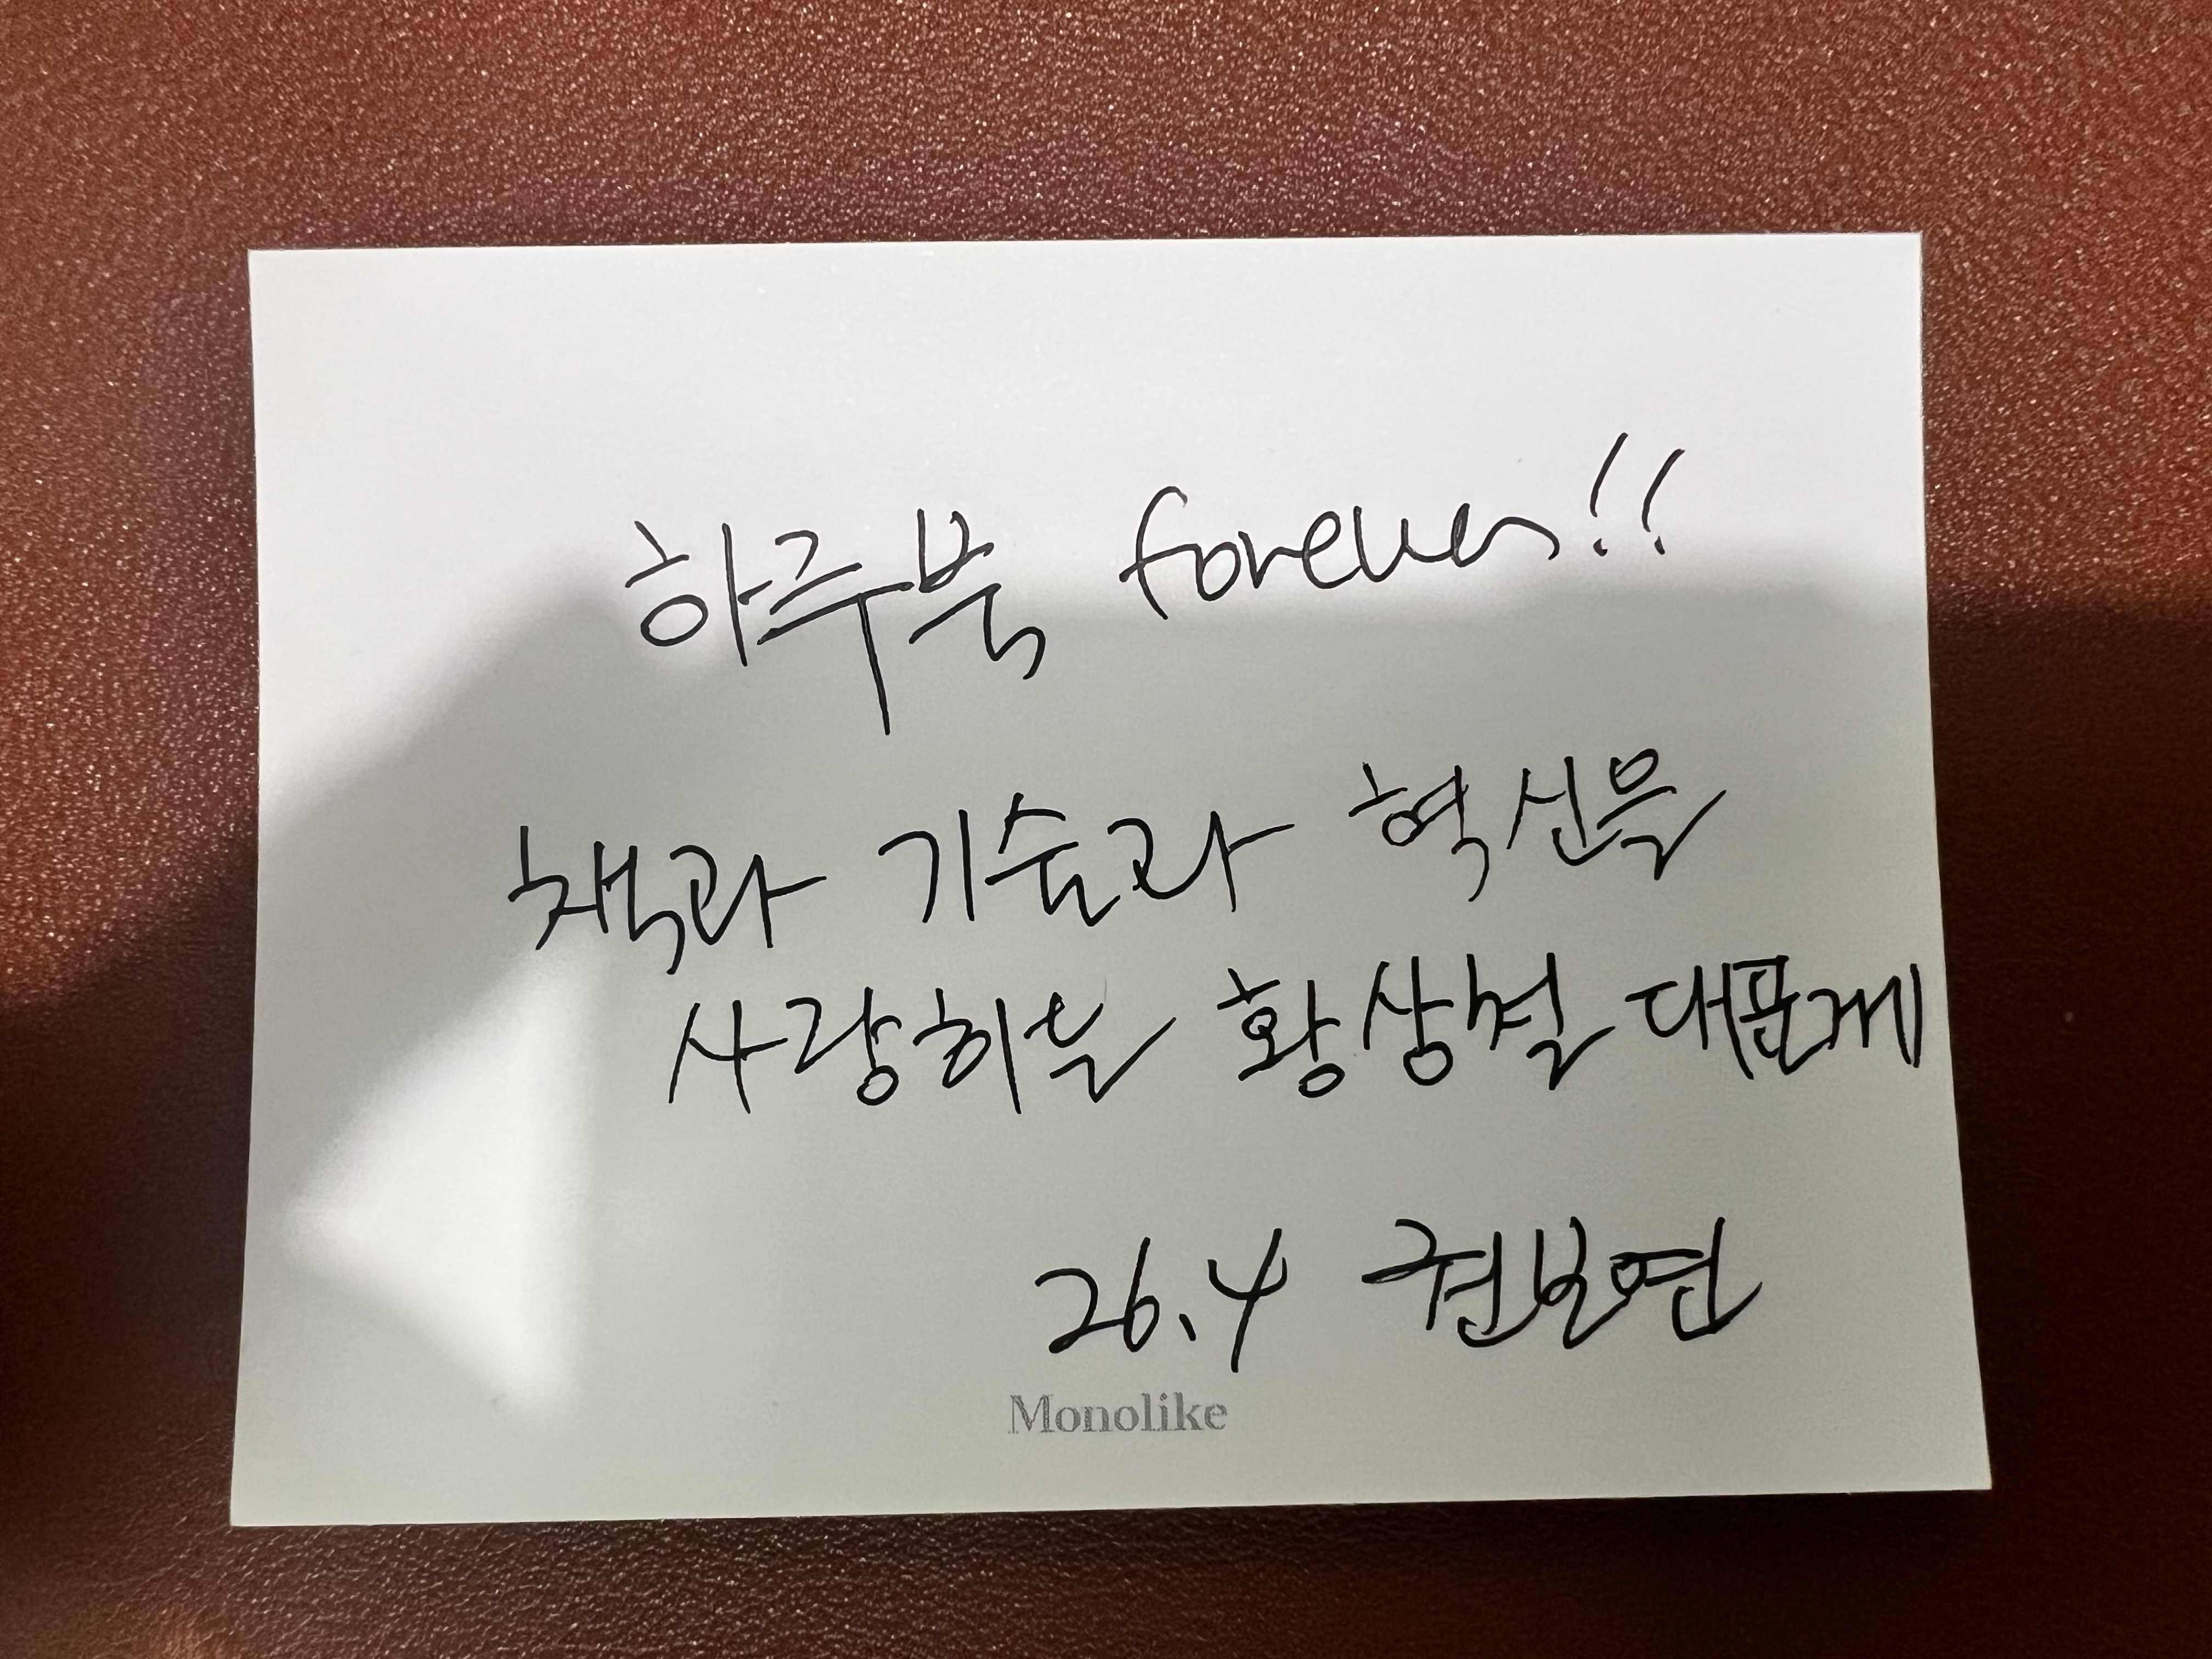 하주북 forever!!
책과 기술과 혁신을
사랑하는 황상철 대표께
26.4 권보연
Monolike